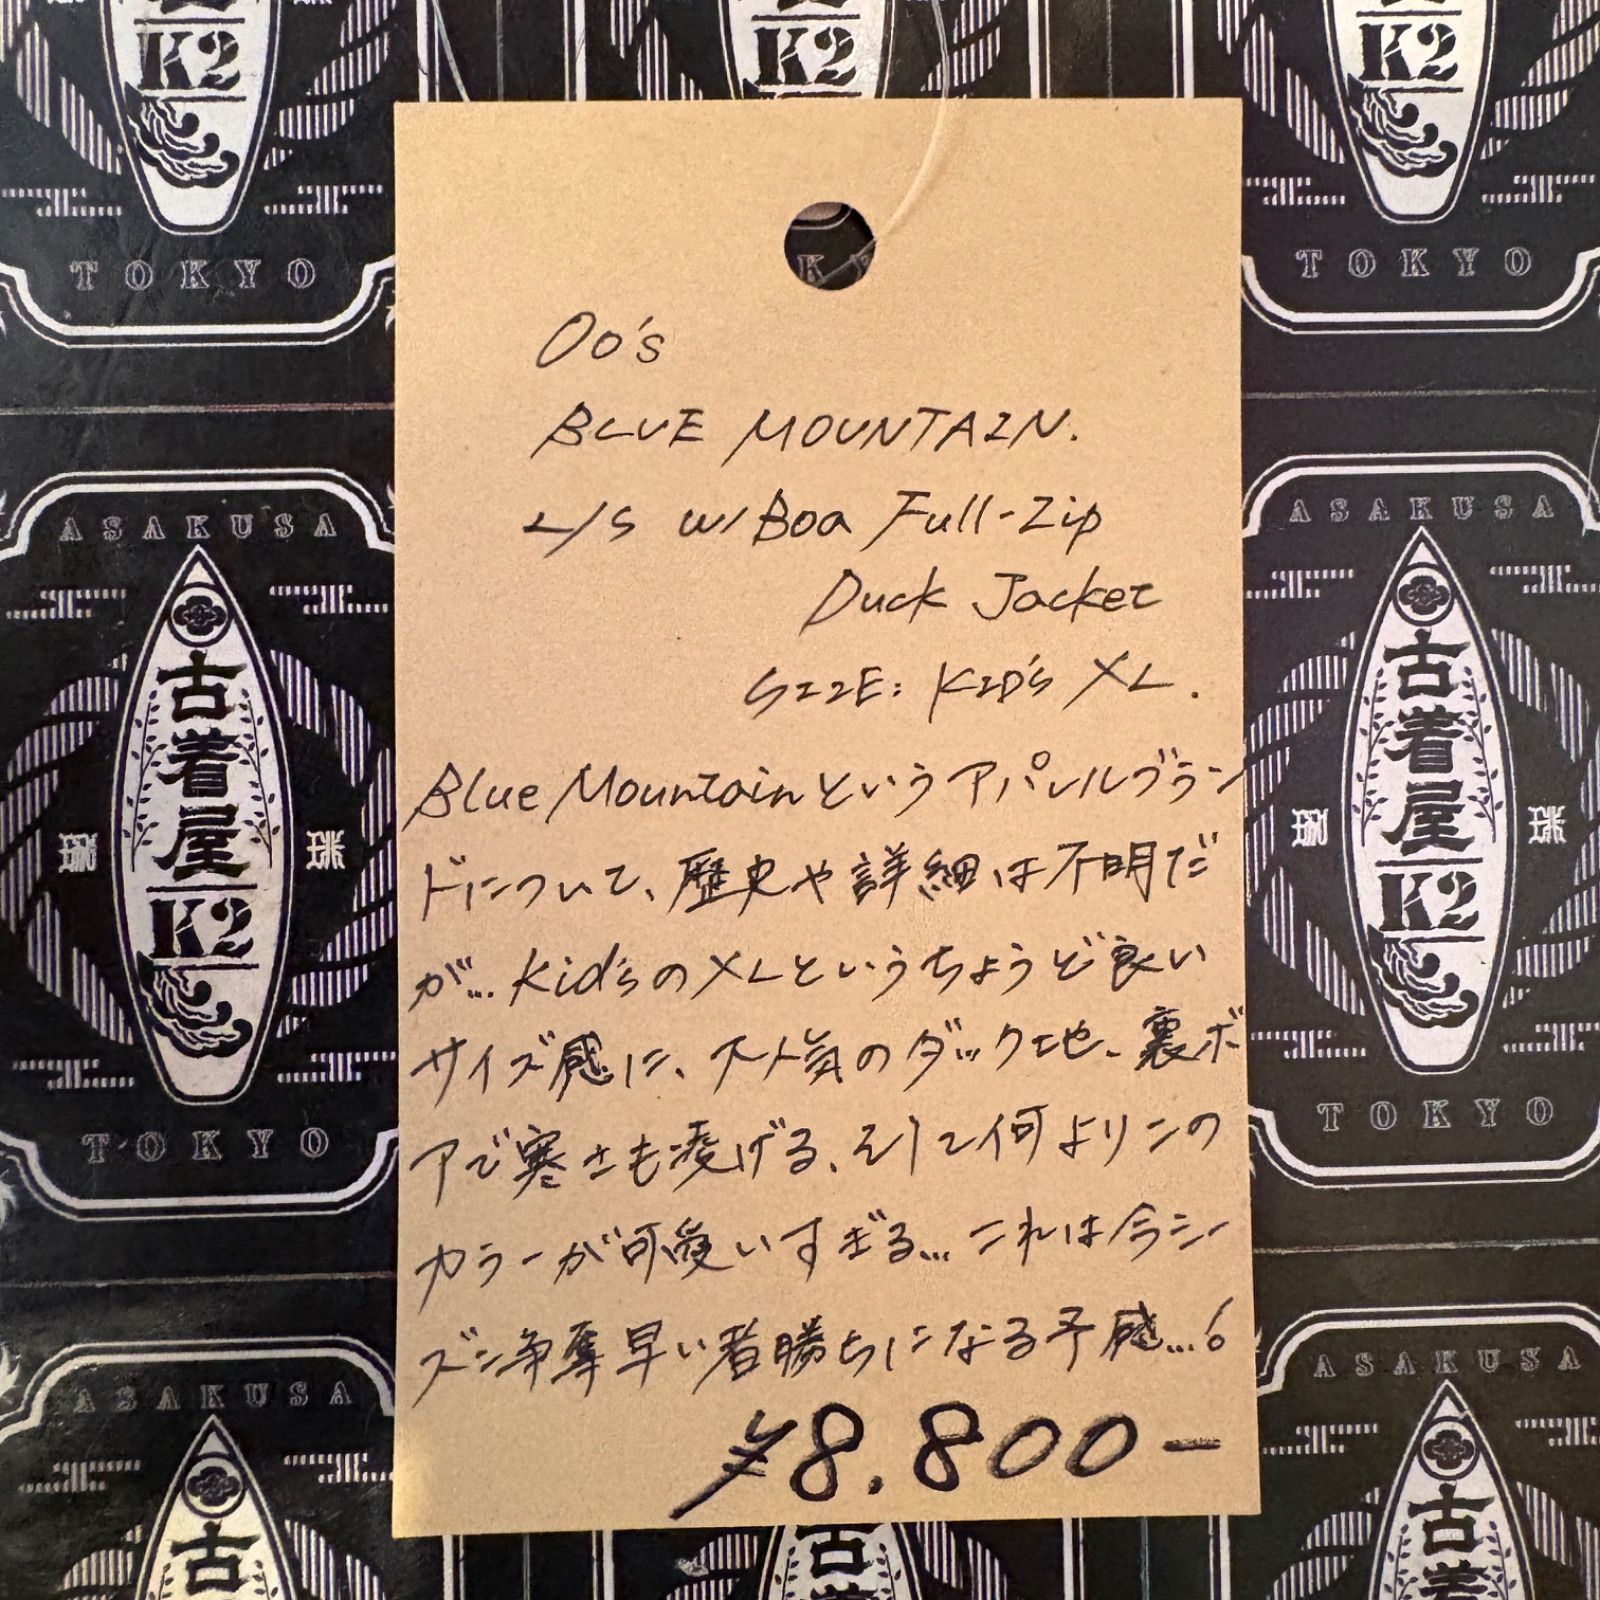 00's
BLUE MOUNTAIN.
L/S w/Boa Full-Zip
Duck Jacket
SIZE: KID'S XL.
Blue Mountainというアパレルブラン
ドについて、歴史や詳細は不明だ
が... Kid'sのXLというちょうど良い
サイズ感に、大人気のダック地、裏ボ
アで寒さも凌げる、そして何よりこの
カラーが可愛いすぎる... これは今シー
ズン争奪早い者勝ちになる予感...!
¥8,800-
K2
TOKYO
K2
K2
TOKYO
ASAKUSA
古着屋
K2
TOKYO
ASAKUSA
古着屋
K2
TOKYO
ASAKUSA
古
ASAKUSA
古着
古着